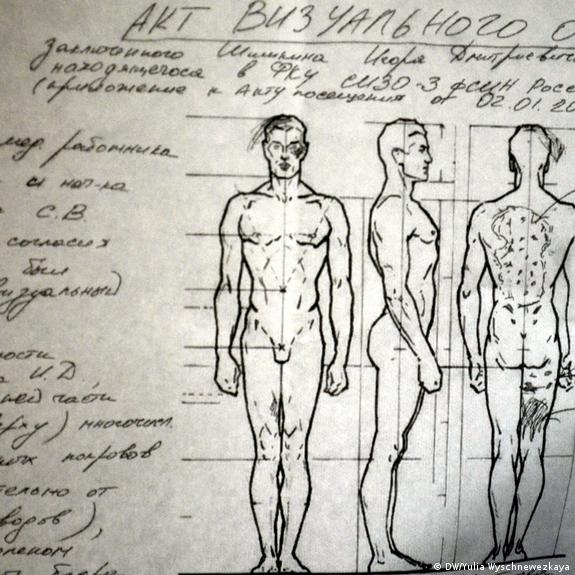 АКТ ВИЗУАЛЬНОГО О
Заключенного Шишкина Игоря Дмитриевич
находящегося в ФКУ СИЗО-3 ФСИН Росс
(приложение к Акту посещения от 02.01.20
мед. работника
и нач-ка
С.В.
согласия
был
визуальный)
ности
а И.Д.
ней части
ерху) многочисл.
ных покровов
тельно от
водов),
коленом
© DW/Yulia Wyschnewezkaya